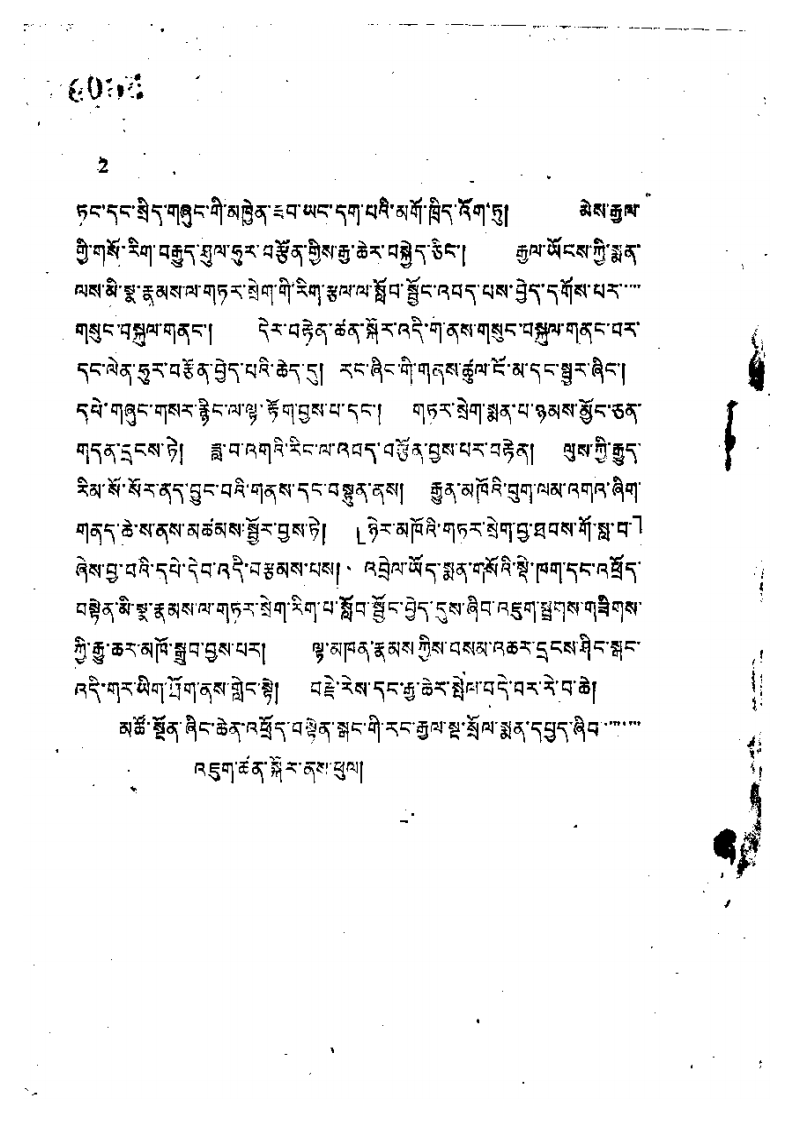 2
ཏང་དང་སྲིད་གཞུང་གི་མཁྱེན་རྫབ་ཡང་དག་པའི་མགོ་ཁྲིད་འོག་ཏུ། མེས་རྒྱལ་
གྱི་གསོ་རིག་བརྒྱུད་ཤུལ་ཧུར་བརྩོན་གྱིས་རྒྱ་ཆེར་བསྐྱེད་ཅིང་། རྒྱལ་ཡོངས་ཀྱི་སྨན་
ལས་མི་སྣ་རྣམས་ལ་གཏར་སྲེག་གི་རིག་རྩལ་ལ་སློབ་སྦྱོང་འབད་པས་བྱེད་དགོས་པར་་་་
གསུང་བསྐུལ་གནང་། དེར་བརྟེན་ཚན་སྐོར་འདི་ག་ནས་གསུང་བསྐུལ་གནང་བར་
དང་ལེན་ཧུར་བརྩོན་བྱེད་པའི་ཆེད་དུ། རང་ཞིང་གི་གནས་ཚུལ་ངོ་མ་དང་སྦྱར་ཞིང་།
དཔེ་གཞུང་གསར་རྙིང་ལ་ལྟ་རྟོག་བྱས་པ་དང་། གཏར་སྲེག་སྨན་པ་ཉམས་མྱོང་ཅན་
གདན་དྲངས་ཏེ། ཟླ་བ་འགའི་རིང་ལ་འབད་བརྩོན་བྱས་པར་བརྟེན། ལུས་ཀྱི་རྒྱུད་
རིམ་སོ་སོར་ནད་བྱུང་བའི་གནས་དང་བསྟུན་ནས། རྒྱུན་མཁོའི་བྱུག་ལམ་འགའ་ཞིག་
གནད་ཆེ་ས་ནས་མཚམས་སྦྱོར་བྱས་ཏེ། ༼ཉེར་མཁོའི་གཏར་སྲེག་བྱ་ཐབས་གོ་སླ་བ༽
ཞེས་བྱ་བའི་དཔེ་དེབ་འདི་བརྩམས་པས། འབྲེལ་ཡོད་སྨན་གསོའི་སྡེ་ཁག་དང་འཕྲོད་
བསྟེན་མི་སྣ་རྣམས་ལ་གཏར་སྲེག་རིག་པ་སློབ་སྦྱོང་བྱེད་དུས་ཞིབ་འཇུག་སྤྲགས་གཟིགས་
ཀྱི་རྒྱུ་ཆར་མཁོ་སྒྲུབ་བྱས་པར། ལྟ་མཁན་རྣམས་ཀྱིས་བསམ་འཆར་དྲངས་ཤིང་སྒང་
འདི་གར་ཡིག་ཤོག་ནས་གླེང་སྟེ། བརྗེ་རེས་དང་རྒྱ་ཆེར་སྤེལ་བདེ་བར་རེ་བ་ཆེ།
མཚོ་སྔོན་ཞིང་ཆེན་འཕྲོད་བསྟེན་སྒང་གི་རང་རྒྱལ་སྔ་སྲོལ་སྨན་དཔྱད་ཞིབ་་་་་
འཇུག་ཚན་སྐོར་ནས་ཕུལ།